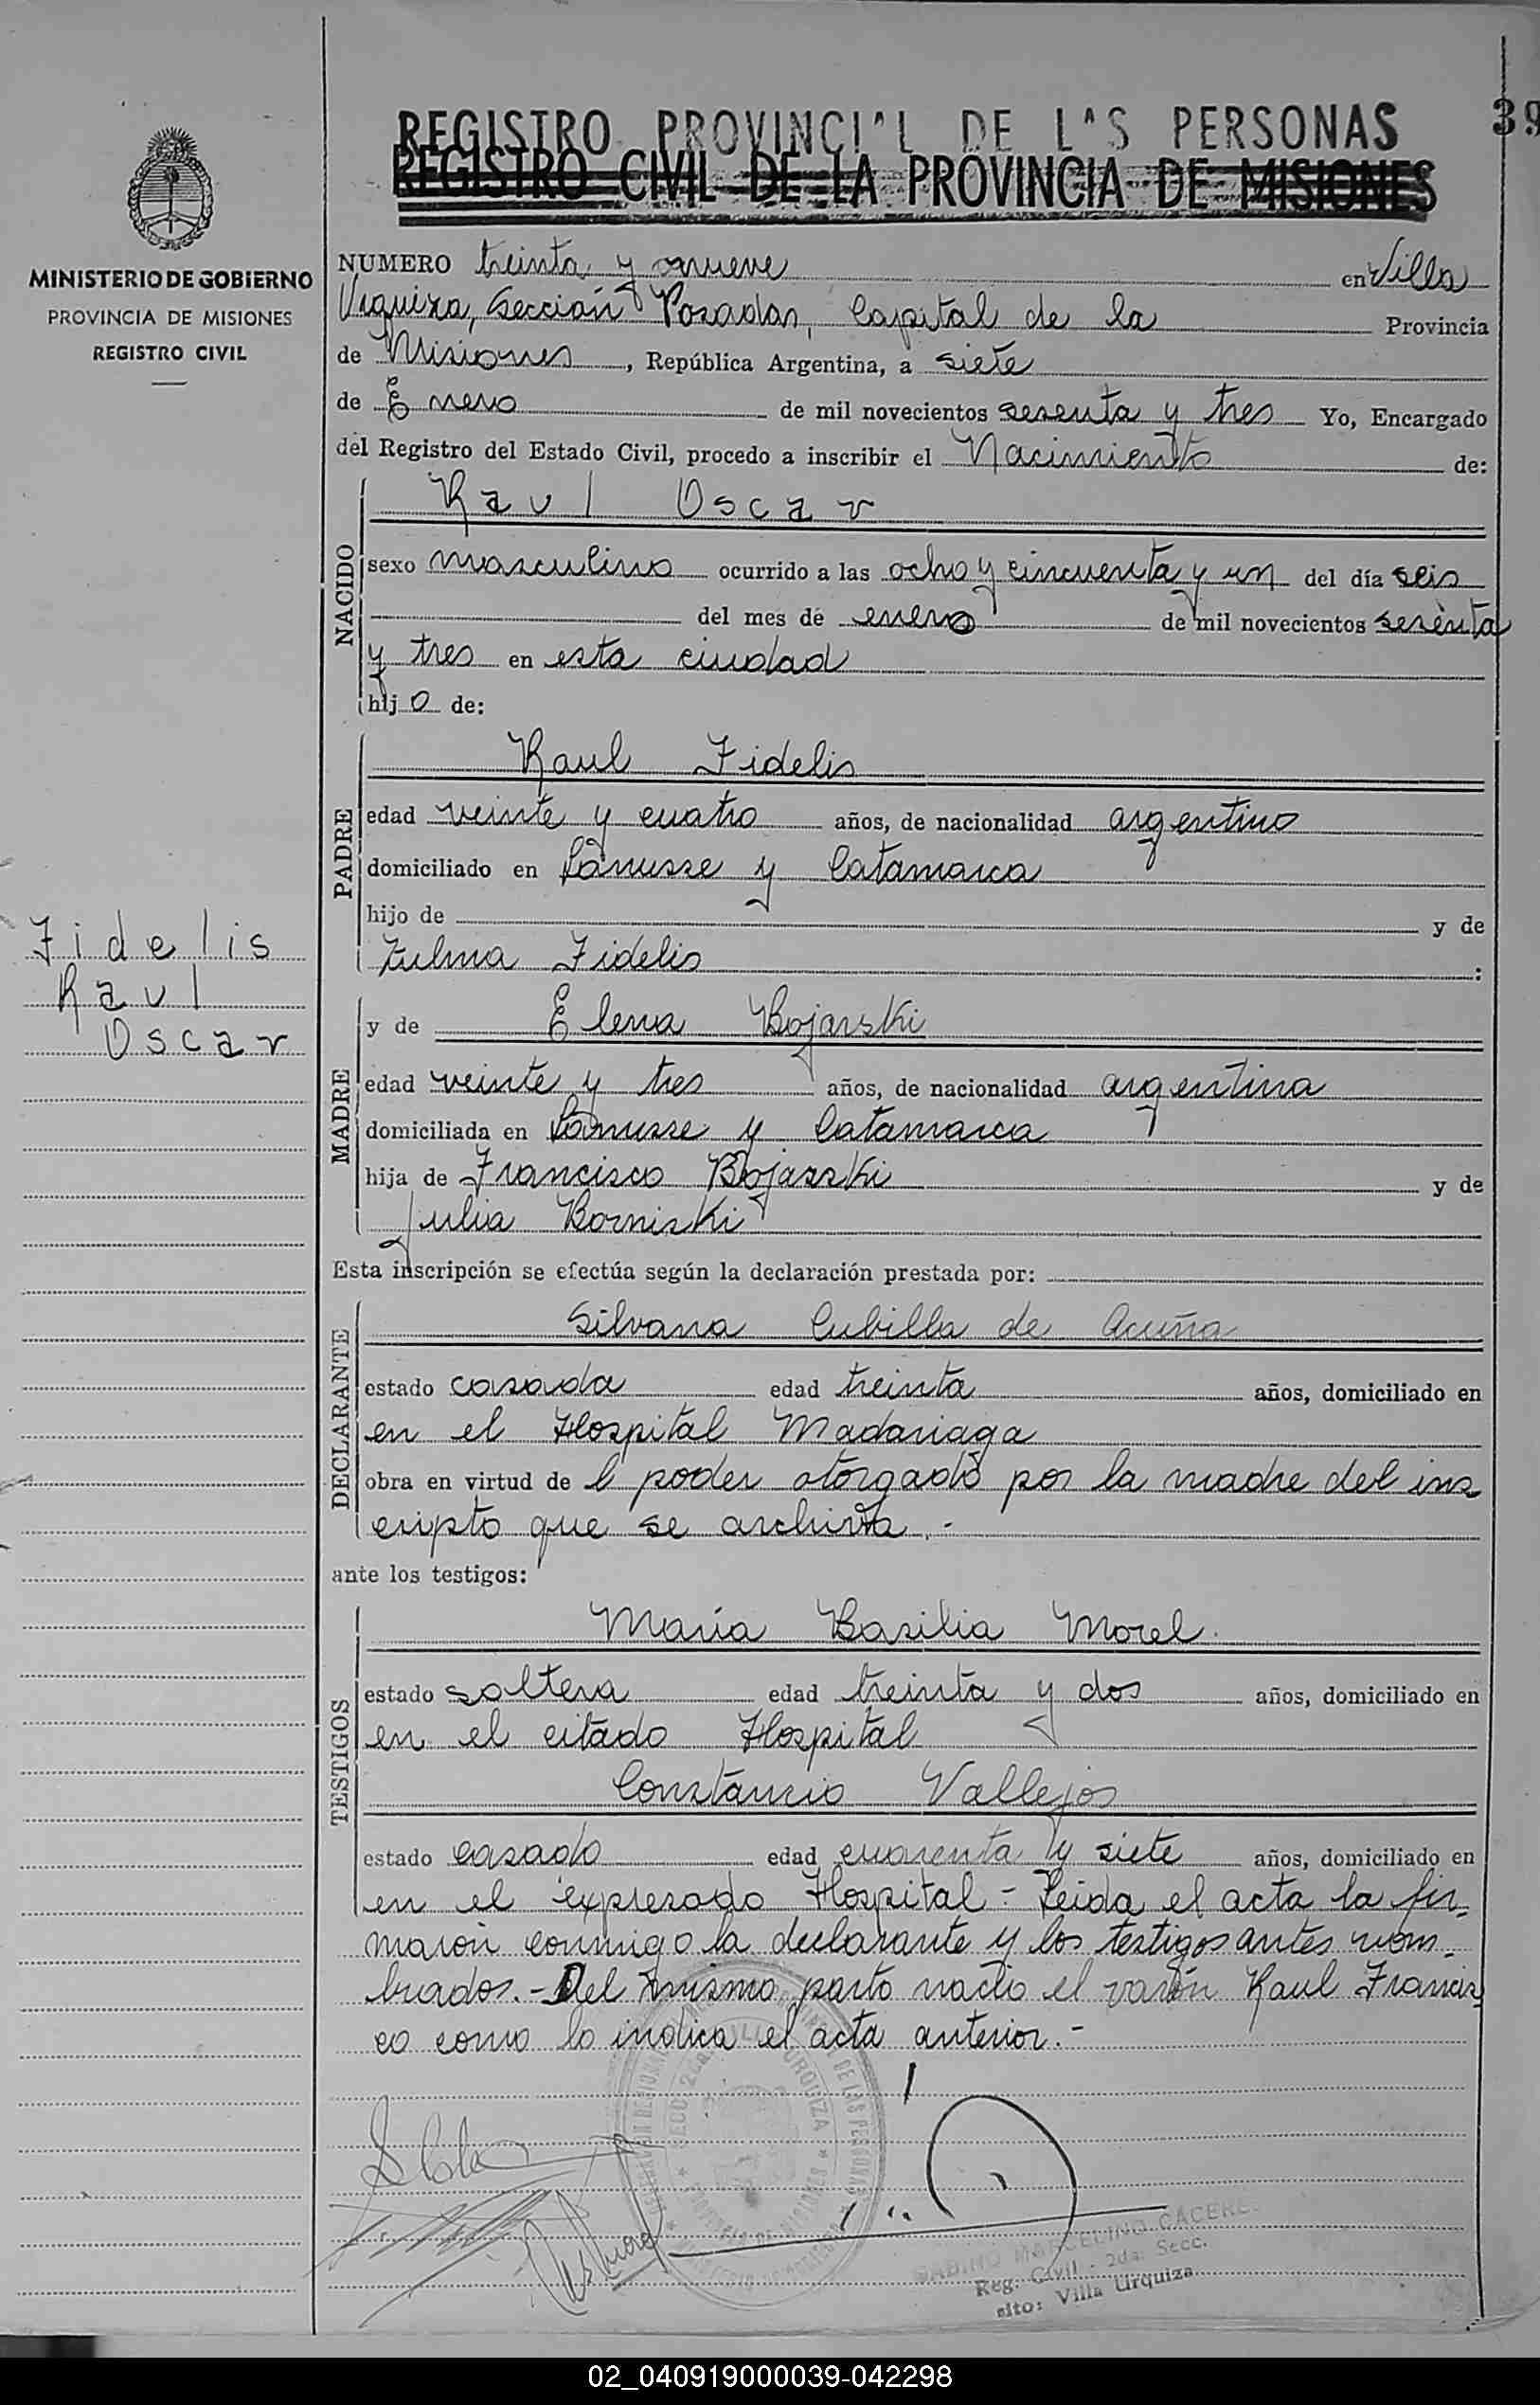 REGISTRO PROVINCIAL DE LAS PERSONAS
39
REGISTRO CIVIL DE LA PROVINCIA DE MISIONES
MINISTERIO DE GOBIERNO
PROVINCIA DE MISIONES
REGISTRO CIVIL
NUMERO treinta y nueve en Villa
Urquiza, Sección Posadas, Capital de la Provincia
de Misiones, República Argentina, a siete
de Enero de mil novecientos sesenta y tres Yo, Encargado
del Registro del Estado Civil, procedo a inscribir el Nacimiento de:
NACIDO
Raul Oscar
sexo masculino ocurrido a las ocho y cincuenta y un del día seis
del mes de enero de mil novecientos sesenta
y tres en esta ciudad
hijo de:
PADRE
Raul Fidelis
edad veinte y cuatro años, de nacionalidad argentino
domiciliado en Lanusse y Catamarca
hijo de y de
Zulma Fidelis :
Fidelis
Raul
Oscar
MADRE
y de Elena Bojarski
edad veinte y tres años, de nacionalidad argentina
domiciliada en Lanusse y Catamarca
hija de Francisco Bojarski y de
Julia Borniski
Esta inscripción se efectúa según la declaración prestada por:
DECLARANTE
Silvana Cubilla de Acuña
estado casada edad treinta años, domiciliado en
en el Hospital Madariaga
obra en virtud de l poder otorgado por la madre del ins
cripto que se archiva.-
ante los testigos:
TESTIGOS
María Basilia Morel.
estado soltera edad treinta y dos años, domiciliado en
en el citado Hospital
Constancio Vallejos
estado casado edad cuarenta y siete años, domiciliado en
en el expresado Hospital - Leida el acta la fir-
maron conmigo la declarante y los testigos antes nom-
brados.- Del mismo parto nacio el varón Raul Francis
co como lo indica el acta anterior.-
SABINO MARCELINO CACERE
Reg. Civil - 2da. Secc.
alto: Villa Urquiza
02_040919000039-042298